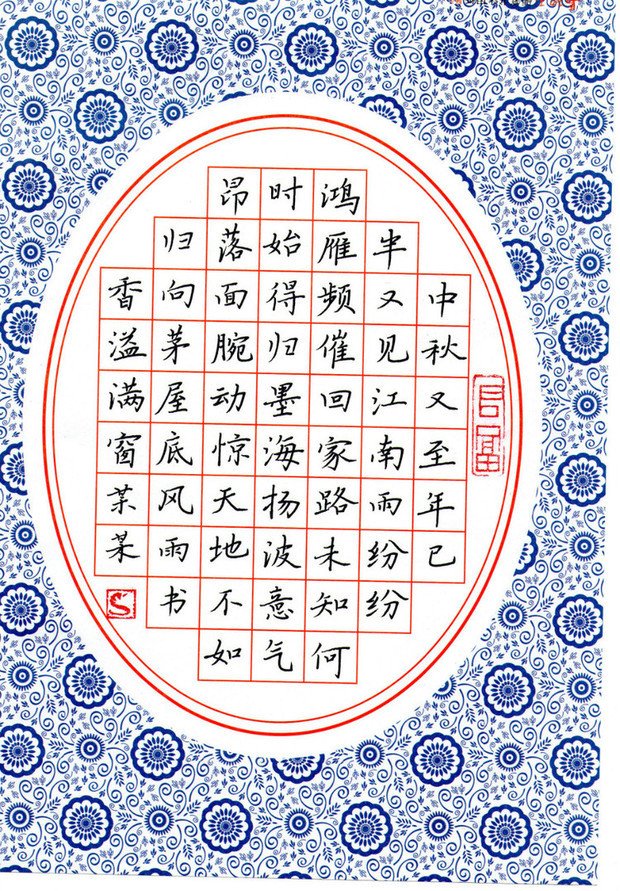 中秋又至年已
半又见江南雨纷纷
鸿雁频催回家路未知何
时始得归墨海扬波意气
昂落面腕动惊天地不如
归向茅屋底风雨书
香溢满窗某某